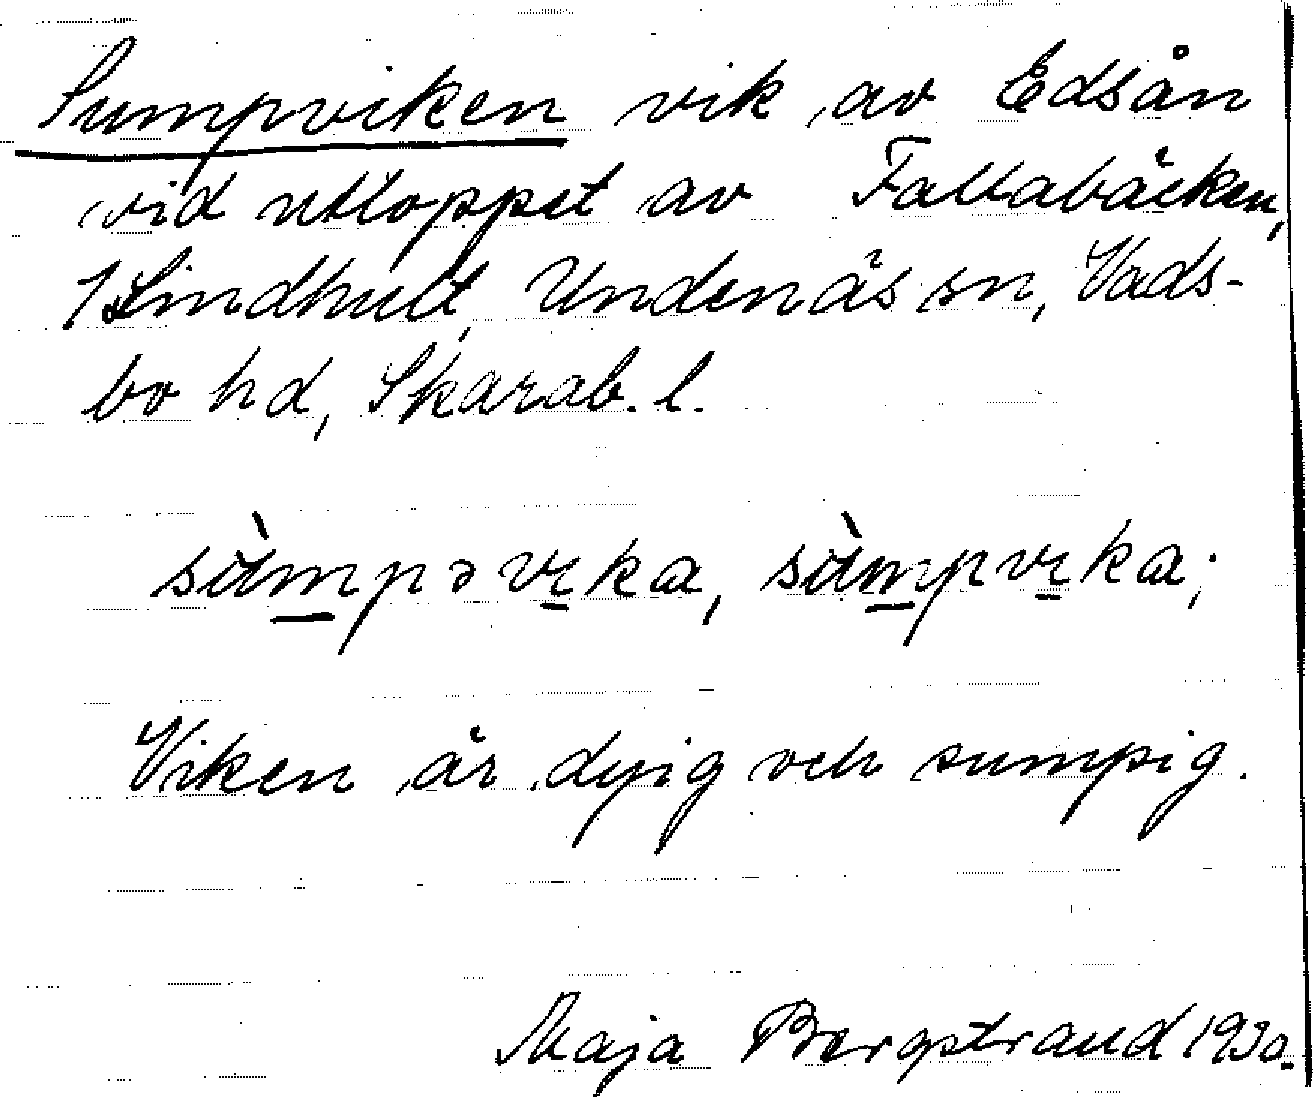 Sumpviken vik av Edsån
vid utloppet av Fallabäcken,
1 Lindhult, Undenäs sn, Vads-
bo hd, Skarab. l.
sùmpəvıka, sùmpvıka;
Viken är dyig och sumpig.
Maja Bergstrand 1930.